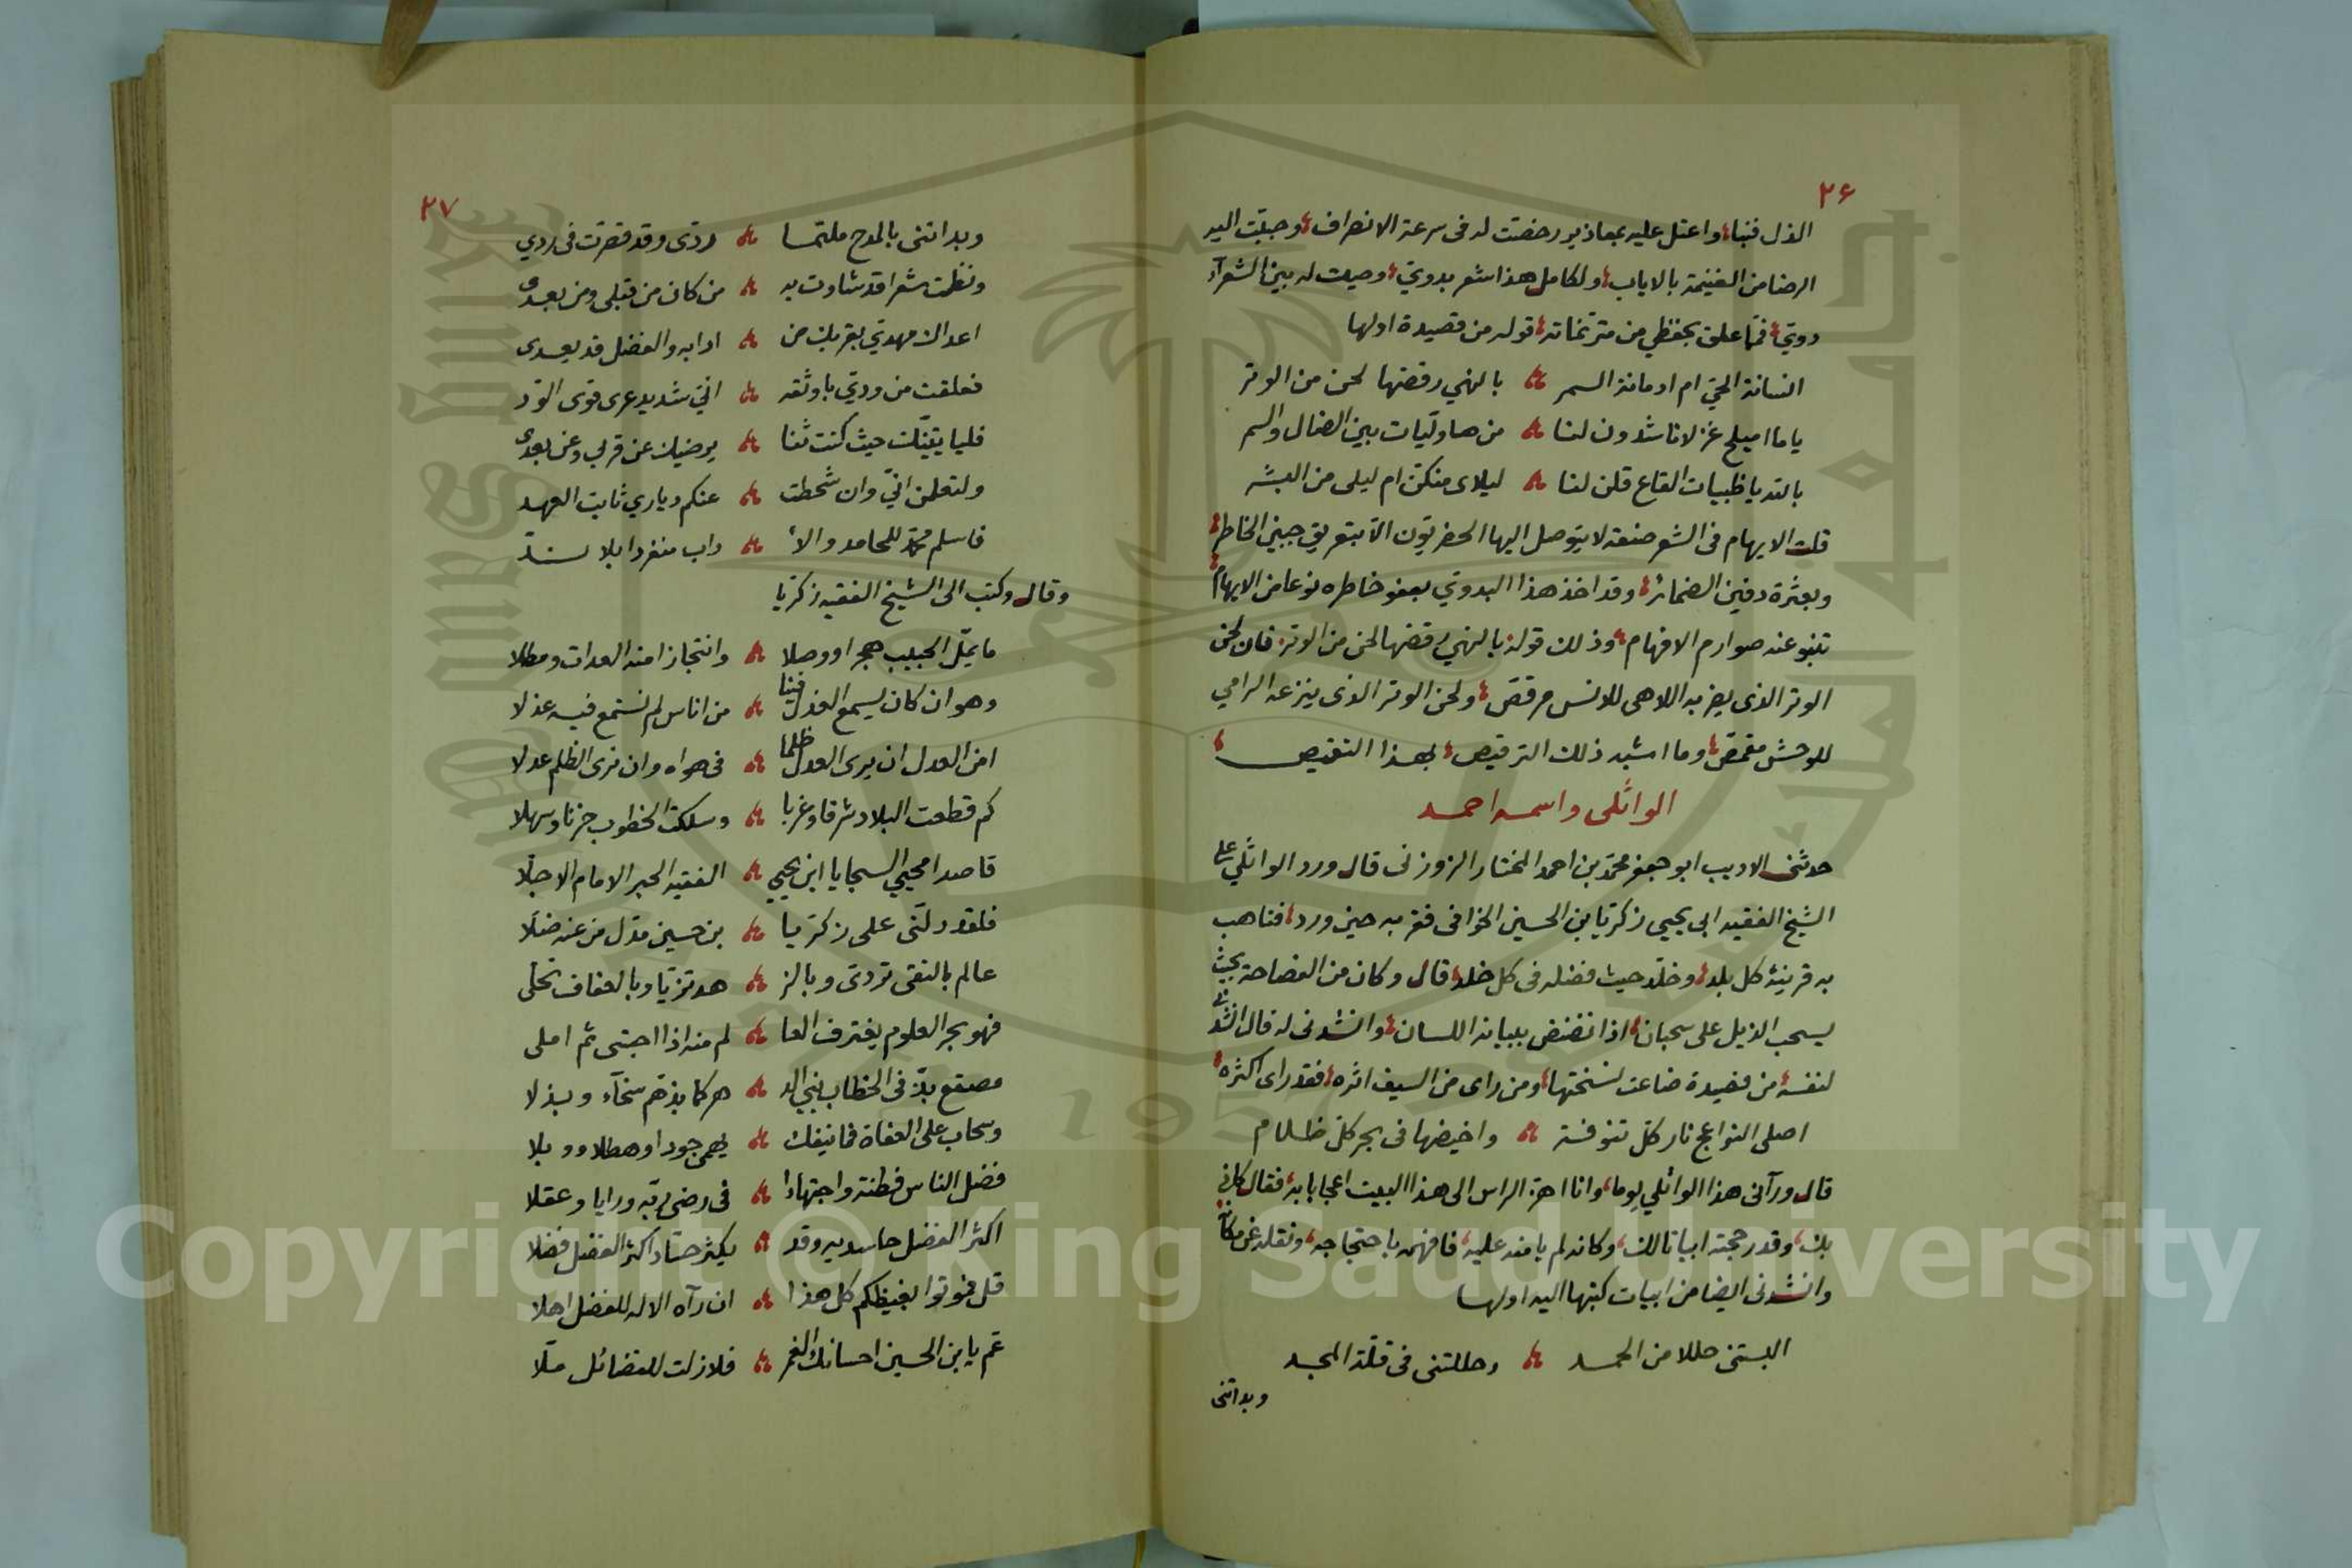 ٢٦
الذل فنبا، واعتل عليه بمعاذير رخصت له في سرعة الانصراف، وحببت اليه
الرضا من الغنيمة بالاياب، ولكامل هذا شعر بدوي، وصيت له بين الشعرآء
دوي، فمما علق بحفظي من مترنماته، قوله من قصيدة اولها
انسانة الحي ام ادمانة السمر بالنهي رقصها لحن من الوتر
ياما اميلح غزلانا شدون لنا من هاوليات بين الضال والسمر
بالله يا ظبيات القاع قلن لنا ليلاى منكن ام ليلى من البشر
قلت الايهام في الشعر صنعة لا يتوصل اليها الحضريون الا بتعريق جبين الخاطر،
وبعثرة دفين الضمائر، وقد اخذ هذا البدوي بعفو خاطره نوعا من الايهام،
تنبو عنه صوارم الافهام، وذلك قوله بالنهي رقصها لحن من الوتر، فان لحن
الوتر الذى يضربه اللاهى للانس مرقص، ولحن الوتر الذى ينزعه الرامي
للوحش مقمص، وما اشبه ذلك الترقيص، بهذا التقميص،
الواثلى واسمه احمد
حدثنى الاديب ابو جعفر محمد بن احمد المختار الزوزنى قال ورد الواثلي على
الشيخ الفقيه ابى يحيى زكريا بن الحسين الخوافى فقربه حين ورد، فتاهب
به قرينة كل بلد، وخلد حيث فضله في كل خلد، قال وكان من الفصاحة بحيث
يسحب الذيل على سحبان، اذا نضنض ببيانه اللسان، وانشدنى له قال انشدنى
لنفسه، من قصيدة ضاعت نسختها، ومن راى من السيف اثره، فقد راى اكثره،
اصلى النواعج نار كل تنوفة واخيضها في بحر كل ظلام
قال ورآنى هذا الواثلي يوما، وانا اهز الراس الى هذا البيت اعجابا به، فقال كانى
بك، وقد رحجته ابياتا لك، وكانه لم يامنه عليه، فافهمه باحتجاجه، ونقله عن مكانه
وانشدنى ايضا من ابيات كتبها اليه اولها
البستنى حللا من الحمد وحللتنى في قلة المجد
وبداتنى
٢٧
وبداتنى بالمدح ملتمسا ودى وقد قصرت في ودي
ونظمت شعرا قد شاوت به من كان من قبلى ومن بعدى
اعداك مهديّ بقربك من ادابه والفضل قد يعدى
فعلقت من ودي باوثقه اني شديد عرى قوى الود
فليا يتينك حيث كنت ثنا يرضيك عن قربي وعن بعدى
ولتعلمن اني وان شحطت عنكم دياري ثابت العهد
فاسلم محمد للمحامد والأ داب منفردا بلا ند
وقال وكتب الى الشيخ الفقيه زكريا
ما يمل الحبيب هجرا ووصلا وانتجازا منه العدات ومطلا
وهو ان كان يسمع العذل فينا من اناس لم نستمع فيه عذلا
امن العدل ان يرى العدل ظلما في هواه وان نرى الظلم عدلا
كم قطعت البلاد شرقا وغربا وسلكت الخطوب حزنا وسهلا
قاصدا محيي السجايا ابن يحيى الفقيه الحبر الامام الاجلا
فلقد دلنى على زكريا بن حسين مدل من عنه ضلا
عالم بالتقى تردى وبالز هد تزيا وبالعفاف تحلى
فهو بحر العلوم يغترف العا لم منه اذا احتبى ثم املى
مصقع بذ في الخطاب بني الد هر كما بذهم سخآء وبذلا
وسحاب على العفاة فما ينفك يهمى جودا وهطلا ووبلا
فضل الناس فطنة واجتهادا في رضى ربه ورايا وعقلا
اكثر الفضل حاسديه وقد يكثر حساد اكثر الفضل فضلا
قل فموتوا بغيظكم كل هذا ان رآه الاله للفضل اهلا
عم يا بن الحسين احسانك الغمر فلا زلت للفضائل ملا
Copyright © King Saud University
1957